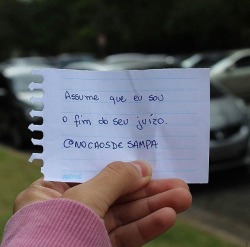 Assume que eu sou
o fim do seu juízo.
@NOCAOSDESAMPA